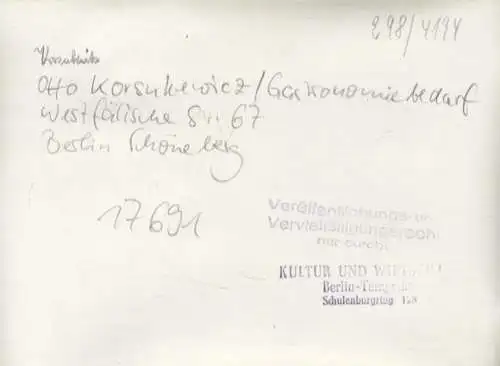 298/4194
Otto Korsukewicz/Gastronomiebedarf
Westfälische Str. 67
Berlin Schöneberg
17691
Veröffentlichungs-u
Vervielfältigungsrecht
nur durch:
KULTUR UND WIRTSCHA
Berlin-Tempe
Schulenburgring